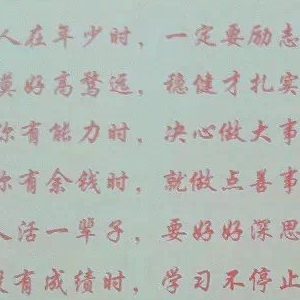 人在年少时，一定要励志
莫好高骛远，稳健才扎实
你有能力时，决心做大事
你有余钱时，就做点善事
人活一辈子，要好好深思
没有成绩时，学习不停止